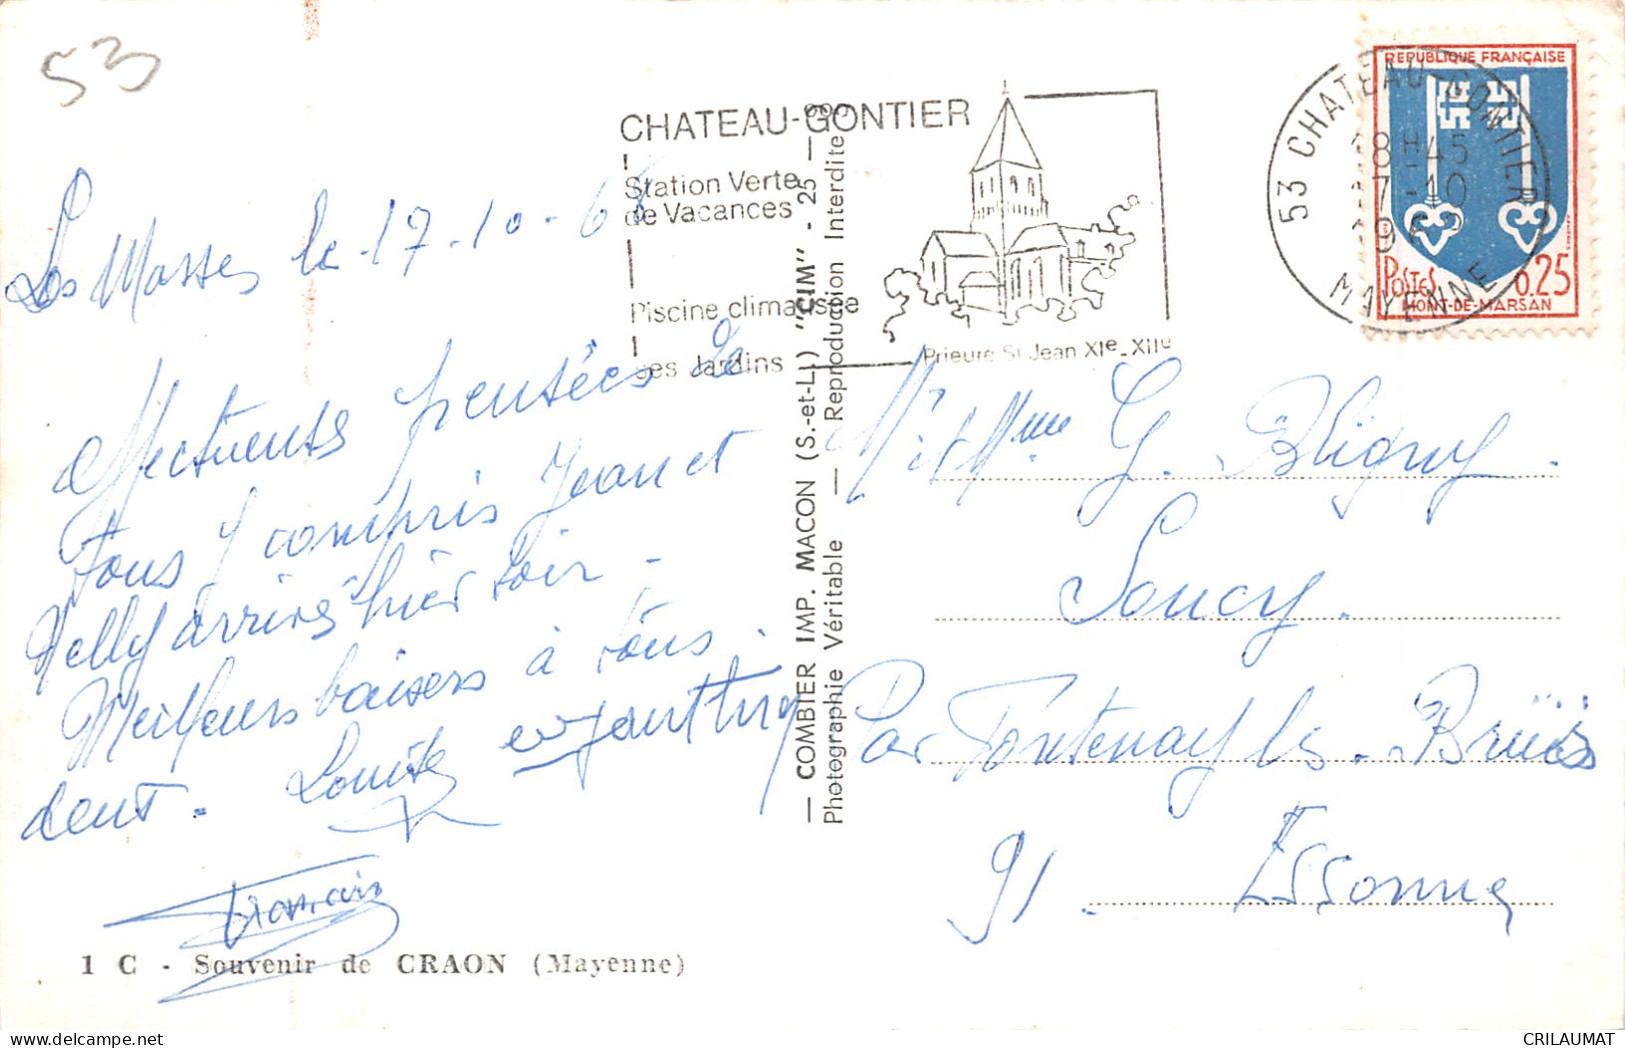 53
CHATEAU-GONTIER
Station Verte
de Vacances
Piscine climatisée
ses Jardins
Prieuré St Jean XIe-XIIe
53 CHATEAU-GONTIER
18H45
17-10
MAYENNE
REPUBLIQUE FRANÇAISE
POSTES 0,25
MONT-DE-MARSAN
Les Masses le 17-10-68
Affectueuses pensées de
tous y compris Jean et
Nelly arrivés hier soir -
Meilleurs baisers à tous.
Louise
Francis
— COMBIER IMP. MACON (S.-et-L.) "CIM" - 25
Photographie Véritable — Reproduction Interdite
Mr et Mme G. Bligny.
Soucy.
Par Fontenay les Briis
91. Essonne
1 C - Souvenir de CRAON (Mayenne)
CRILAUMAT